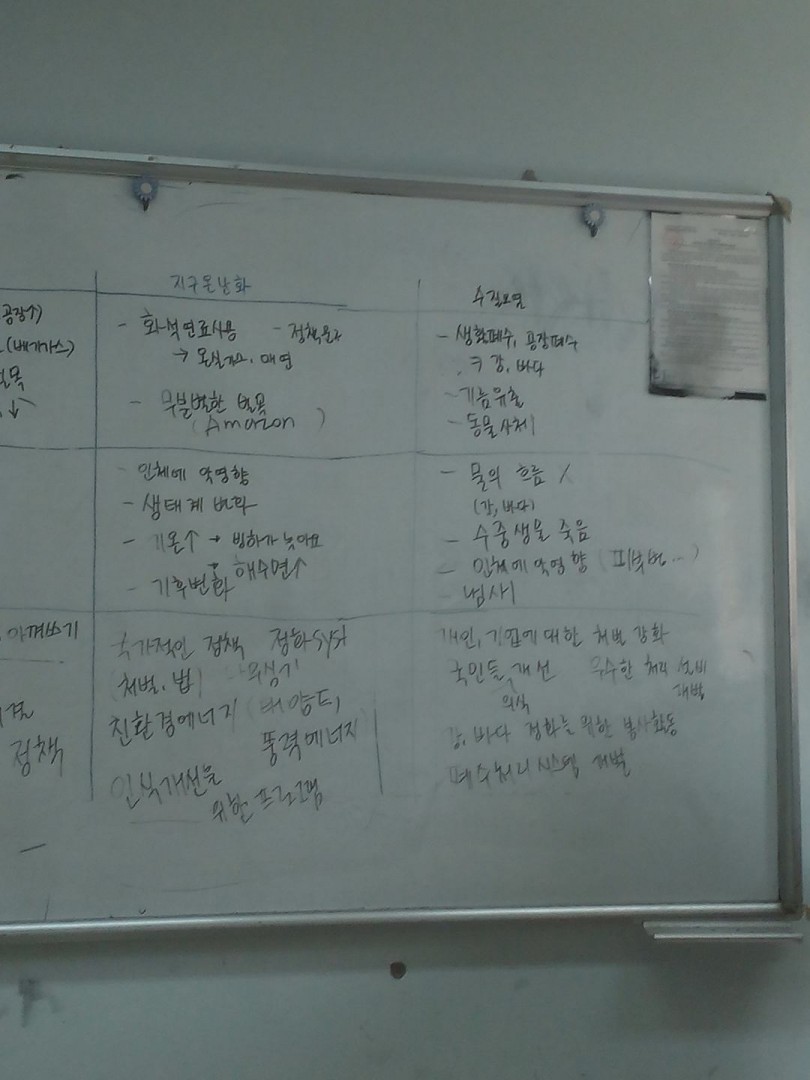 지구온난화
수질오염
공장↑)
(배기가스)
- 화석연료사용 - 정책
→ 온실가스, 매연
- 무분별한 벌목
(Amazon )
- 생활폐수, 공장폐수
강, 바다
- 기름유출
- 동물사체
- 인체에 악영향
- 생태계 변화
- 기온↑ → 빙하가 녹아요
→ 해수면↑
- 기후변화
- 물의 흐름 X
(강, 바다)
- 수중생물 죽음
- 인체에 악영향 (피부병...)
- 냄새
아껴쓰기
정책
국가적인 정책 정화syst
(처벌, 법)
친환경에너지 (태양열,
풍력에너지
인식개선을
위한 프로그램
개인, 기업에 대한 처벌 강화
국민들 개선 우수한 처리 설비
의식 개발
강, 바다 정화를 위한 봉사활동
폐수처리 시스템 개발